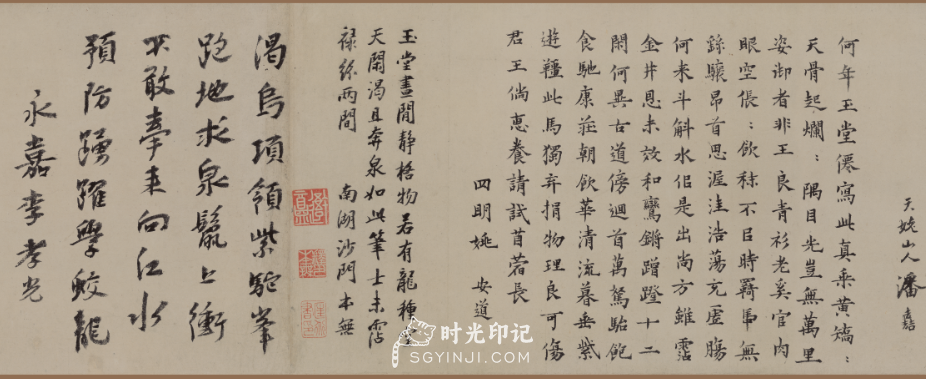 天姥山人潘
何年玉堂僊寫此真乘黄矯:
天骨起爛:隅目光豈無萬里
姿御者非王良青衫老奚官肉
眼空倀:飲秣不㠯時羈馽無
繇驤昂首思渥洼浩蕩充虛腸
何来斗斛水但是出尚方雖霑
金井恩未效和鸞鏘蹭蹬十二
閑何異古道傍迴首萬駑駘飽
食馳康莊朝飲華清流暮垂紫
遊韁此馬獨弃捐物理良可傷
君王倘惠養請試苜蓿長
四明姚安道
玉堂晝閒静格物若有龍種
天閑渴且奔泉如此筆士未霑
禄絲两間 南湖沙門本無
渴烏項領紫駝峯
跑地求泉鬣上衝
不敢牽来向江水
預防踴躍學蛟龍
永嘉李孝光
时光印记
SGYINJI.COM